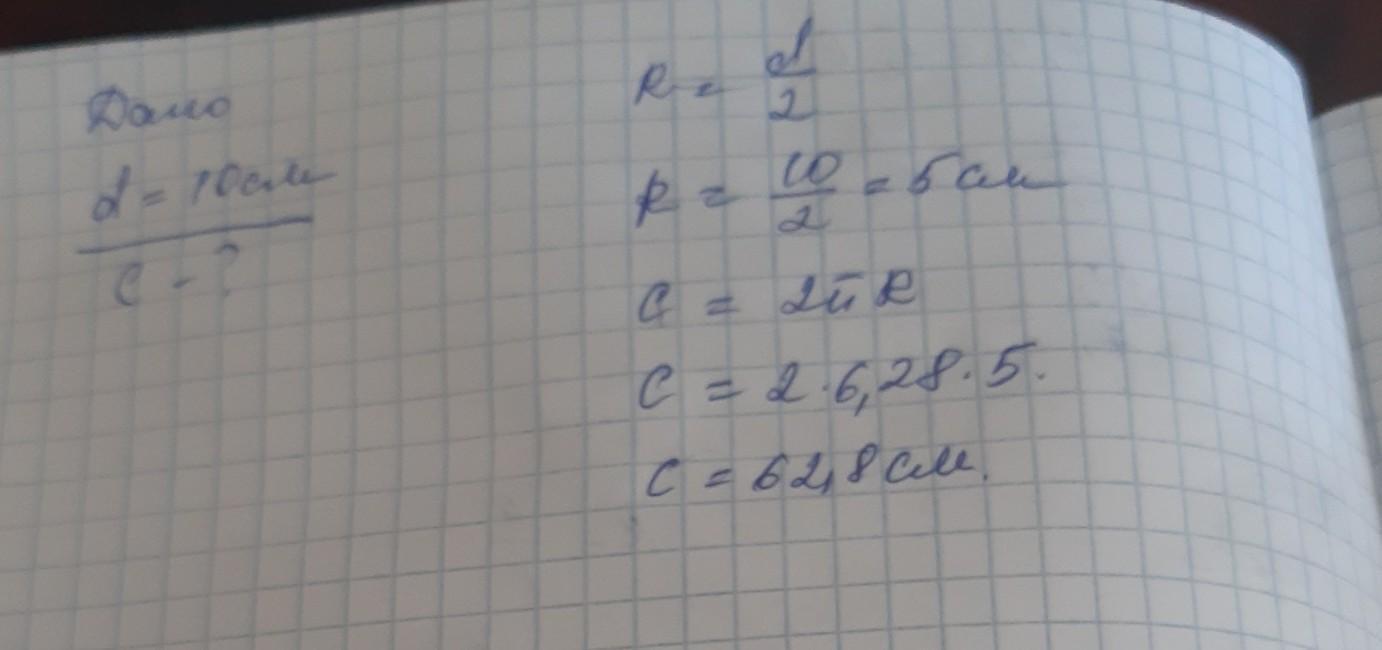 Дано
d = 10см
C - ?
R = d/2
R = 10/2 = 5 см
C = 2πR
C = 2·6,28·5.
C = 62,8 см.